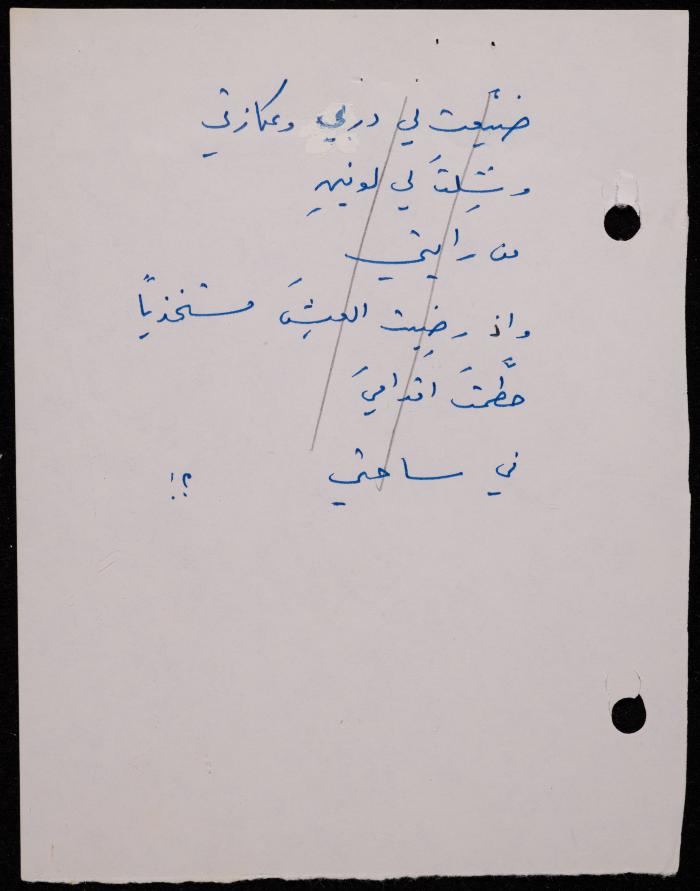 ضيَّعت لي دربي وعكازتي
وشِلتَ لي لونينِ
من رايتي
واذ رضيت العيشَ مستخذياً
حطَّمتَ اقداميَ
في ساحتي ؟!